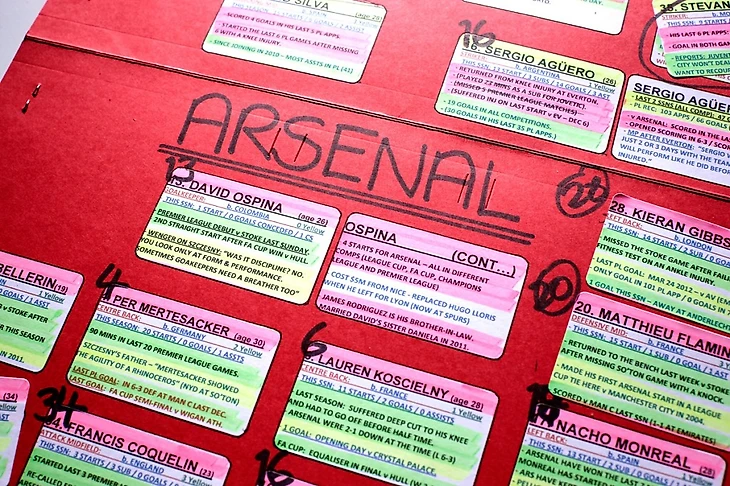 O SILVA (age 28)
b. SPAIN
- SCORED 4 GOALS IN HIS LAST 5 PL APPS.
- STARTED THE LAST 6 PL GAMES AFTER MISSING
6 WITH A KNEE INJURY.
- SINCE JOINING IN 2010 - MOST ASSTS IN PL (41)
16
16. SERGIO AGÜERO
STRIKER: b. ARGENTINA (26)
THIS SSN: 13 START / 3 SUB / 14 GOALS / 3 AST
- RETURNED FROM KNEE INJURY AT EVERTON.
(PLAYED 22 MINS AS A SUB FOR JOVETIC).
(MISSED 5 PREMIER LEAGUE MATCHES -
(SUFFERED INJ ON LAST START v EV – DEC 6)
- 19 GOALS IN ALL COMPETITIONS.
(30 GOALS IN HIS LAST 35 PL APPS.)
35. STEVAN
STRIKER:
THIS SSN: 9 STARTS
HIS LAST 6 PL APPS:
- GOAL IN BOTH GAM
- REPORTS: JUVENT
CITY WON'T DEAL
WANT TO RECOU
SERGIO AGÜER
- LAST 2 SSNS (ALL COMP): 47 G
- PL REC: 103 APPS / 66 GOALS
- v ARSENAL: SCORED IN THE LA
- OPENED SCORING IN 6-3 /
- MP AFTER EVERTON: "SERGIO
JUST 2 OR 3 DAYS WITH THE TEAM
WILL PERFORM LIKE HE DID BEFO
INJURED."
ARSENAL
13
13. DAVID OSPINA
GOALKEEPER: b. COLOMBIA (age 26)
THIS SSN: 1 START / 0 GOALS CONCEDED / 1 CS
0 Yellow
PREMIER LEAGUE DEBUT v STOKE LAST SUNDAY.
2ND STRAIGHT START AFTER FA CUP WIN v HULL.
WENGER ON SZCZESNY: "WAS IT DISCIPLINE? NO.
YOU LOOK ONLY AT FORM & PERFORMANCE.
SOMETIMES GOAKEEPERS NEED A BREATHER TOO"
OSPINA (CONT...)
4 STARTS FOR ARSENAL – ALL IN DIFFERENT
COMPS (LEAGUE CUP, FA CUP, CHAMPIONS
LEAGUE AND PREMIER LEAGUE)
COST £3M FROM NICE - REPLACED HUGO LLORIS
WHEN HE LEFT FOR LYON (NOW AT SPURS)
JAMES RODRIGUEZ IS HIS BROTHER-IN-LAW.
MARRIED DAVID'S SISTER DANIELA IN 2011.
28
28. KIERAN GIBBS
LEFT BACK: b. LONDON
THIS SSN: 14 STARTS / 2 SUB
MISSED THE STOKE GAME AFTER FAIL
FITNESS TEST ON AN ANKLE INJURY.
LAST PL GOAL: MAR 24 2012 – v AV (EM
ONLY GOAL IN 101 PL APP / 0 GOALS IN
1 GOAL THIS SSN – AWAY AT ANDERLECHT
BELLERIN (19)
b. SPAIN
0 GOALS / 1 Yellow
v STOKE AFTER
R THIS SEASON
IN 2011.
4
4. PER MERTESACKER (age 30)
CENTRE BACK: b. GERMANY 2 Yellow
THIS SEASON: 20 STARTS / 0 GOALS / 1 ASSTS
90 MINS IN LAST 20 PREMIER LEAGUE GAMES.
SZCZESNY'S FATHER – "MERTESACKER SHOWED
THE AGILITY OF A RHINOCEROS" (NYD AT SO'TON)
LAST PL GOAL: IN 6-3 DEF AT MAN C LAST DEC.
LAST GOAL: FA CUP SEMI-FINAL v WIGAN ATH.
6
6. LAUREN KOSCIELNY (age 28)
CENTRE BACK: b. FRANCE 1 Yellow
THIS SSN: 11 STARTS / 2 GOALS / 0 ASSISTS
LAST SEASON: SUFFERED DEEP CUT TO HIS KNEE
AND HAD TO GO OFF BEFORE HALF TIME.
ARSENAL WERE 2-1 DOWN AT THE TIME (L 6-3)
1 GOAL: OPENING DAY v CRYSTAL PALACE.
FA CUP: EQUALISER IN FINAL v HULL
20
20. MATTHIEU FLAMIN
DEFENSIVE MID: b. FRANCE
THIS SSN: 15 START / 1 SUB / 1 GOAL
RETURNED TO THE BENCH LAST WEEK v STOKE
AFTER MISSING SO'TON GAME WITH A KNOCK
- MADE HIS FIRST ARSENAL START IN A LEAGUE
CUP TIE HERE v MANCHESTER CITY IN 2004.
SCORED v MAN C LAST SSN (1-1 AT EMIRATES)
(34)
1 Yellow
34
34. FRANCIS COQUELIN (23)
ATTACK MIDFIELD: b. ENGLAND
THIS SSN: 3 STARTS / 3 SUB / 0 GOALS / 0 ASSISTS
STARTED LAST 3 PREMIER
RE-CALLED
16
NACHO MONREAL (28)
LEFT BACK: b. SPAIN
THIS SSN: 13 START / 2 SUB
ARSENAL HAVE WON THE LAST
MONREAL HAS STARTED
ARS HAVE KEPT